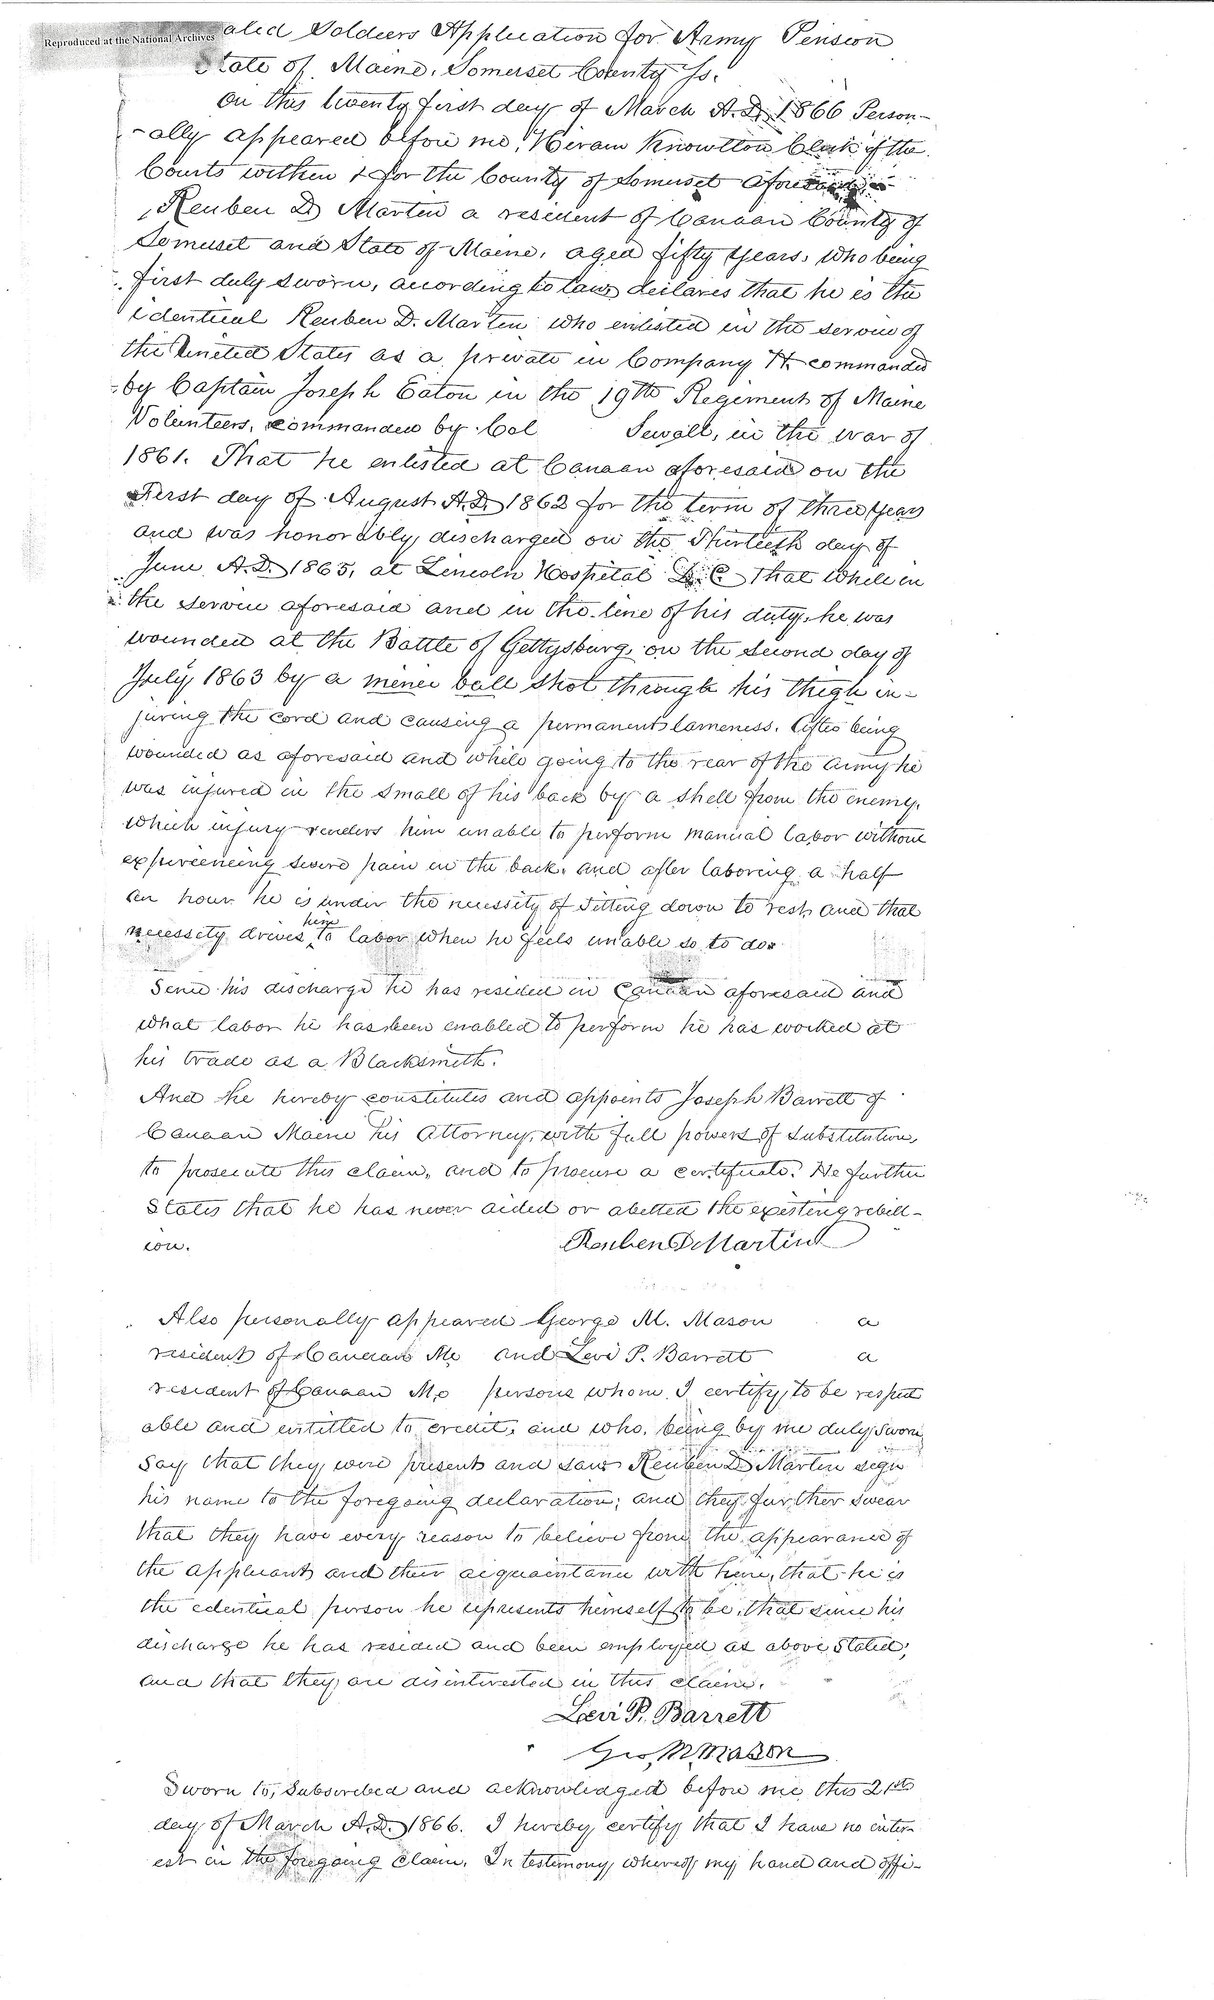 Reproduced at the National Archives
alid Soldiers Application for Army Pension
State of Maine, Somerset County Ss.
On this twenty first day of March A.D. 1866 Person-
-ally appeared before me, Hiram Knowlton Clerk of the
Courts within & for the County of Somerset aforesaid
Reuben D Martin a resident of Canaan County of
Somerset and State of Maine, aged fifty years, who being
first duly sworn, according to law, declares that he is the
identical Reuben D. Martin who enlisted in the service of
the United States as a private in Company H. commanded
by Captain Joseph Eaton in the 19th Regiment of Maine
Volunteers, commanded by Col Sewall, in the war of
1861. That he enlisted at Canaan aforesaid on the
First day of August A.D. 1862 for the term of three years
and was honorably discharged on the Thirtieth day of
June A.D. 1865, at Lincoln Hospital D.C. That while in
the service aforesaid and in the line of his duty, he was
wounded at the Battle of Gettysburg, on the second day of
July 1863 by a minei ball shot through his thigh in-
juring the cord and causing a permanent lameness. After being
wounded as aforesaid and while going to the rear of the army he
was injured in the small of his back by a shell from the enemy,
which injury renders him unable to perform manual labor without
experiencing severe pain in the back, and after laboring a half
an hour he is under the necessity of sitting down to rest and that
necessity drives him to labor when he feels unable so to do.
Since his discharge he has resided in Canaan aforesaid and
what labor he has been enabled to perform he has worked at
his trade as a Blacksmith.
And he hereby constitutes and appoints Joseph Barrett of
Canaan Maine his Attorney, with full powers of substitution,
to prosecute this claim, and to procure a certificate. He further
States that he has never aided or abetted the existing rebell-
ion. Reuben D Martin
Also personally appeared George M. Mason a
resident of Canaan Me and Levi P. Barrett a
resident of Canaan Me persons whom I certify to be respect
able and entitled to credit, and who, being by me duly sworn
say that they were present and saw Reuben D. Martin sign
his name to the foregoing declaration; and they further swear
that they have every reason to believe from the appearance of
the applicant and their acquaintance with him, that he is
the identical person he represents himself to be, that since his
discharge he has resided and been employed as above stated;
and that they are disinterested in this claim.
Levi P. Barrett
Geo, M. Mason
Sworn to, Subscribed and acknowledged before me this 21st
day of March A.D. 1866. I hereby certify that I have no inter-
est in the foregoing claim. In testimony whereof my hand and offi-